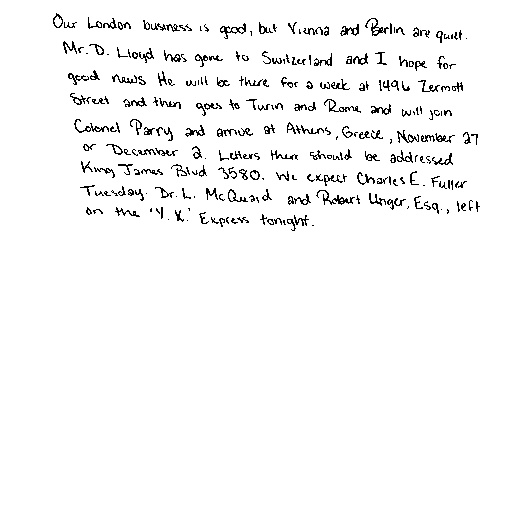 Our London business is good, but Vienna and Berlin are quiet.
Mr. D. Lloyd has gone to Switzerland and I hope for
good news. He will be there for a week at 1496 Zermott
Street and then goes to Turin and Rome and will join
Colonel Parry and arrive at Athens, Greece, November 27
or December 2. Letters there should be addressed
King James Blvd 3580. We expect Charles E. Fuller
Tuesday. Dr. L. McQuaid and Robert Unger, Esq., left
on the 'Y. X.' Express tonight.